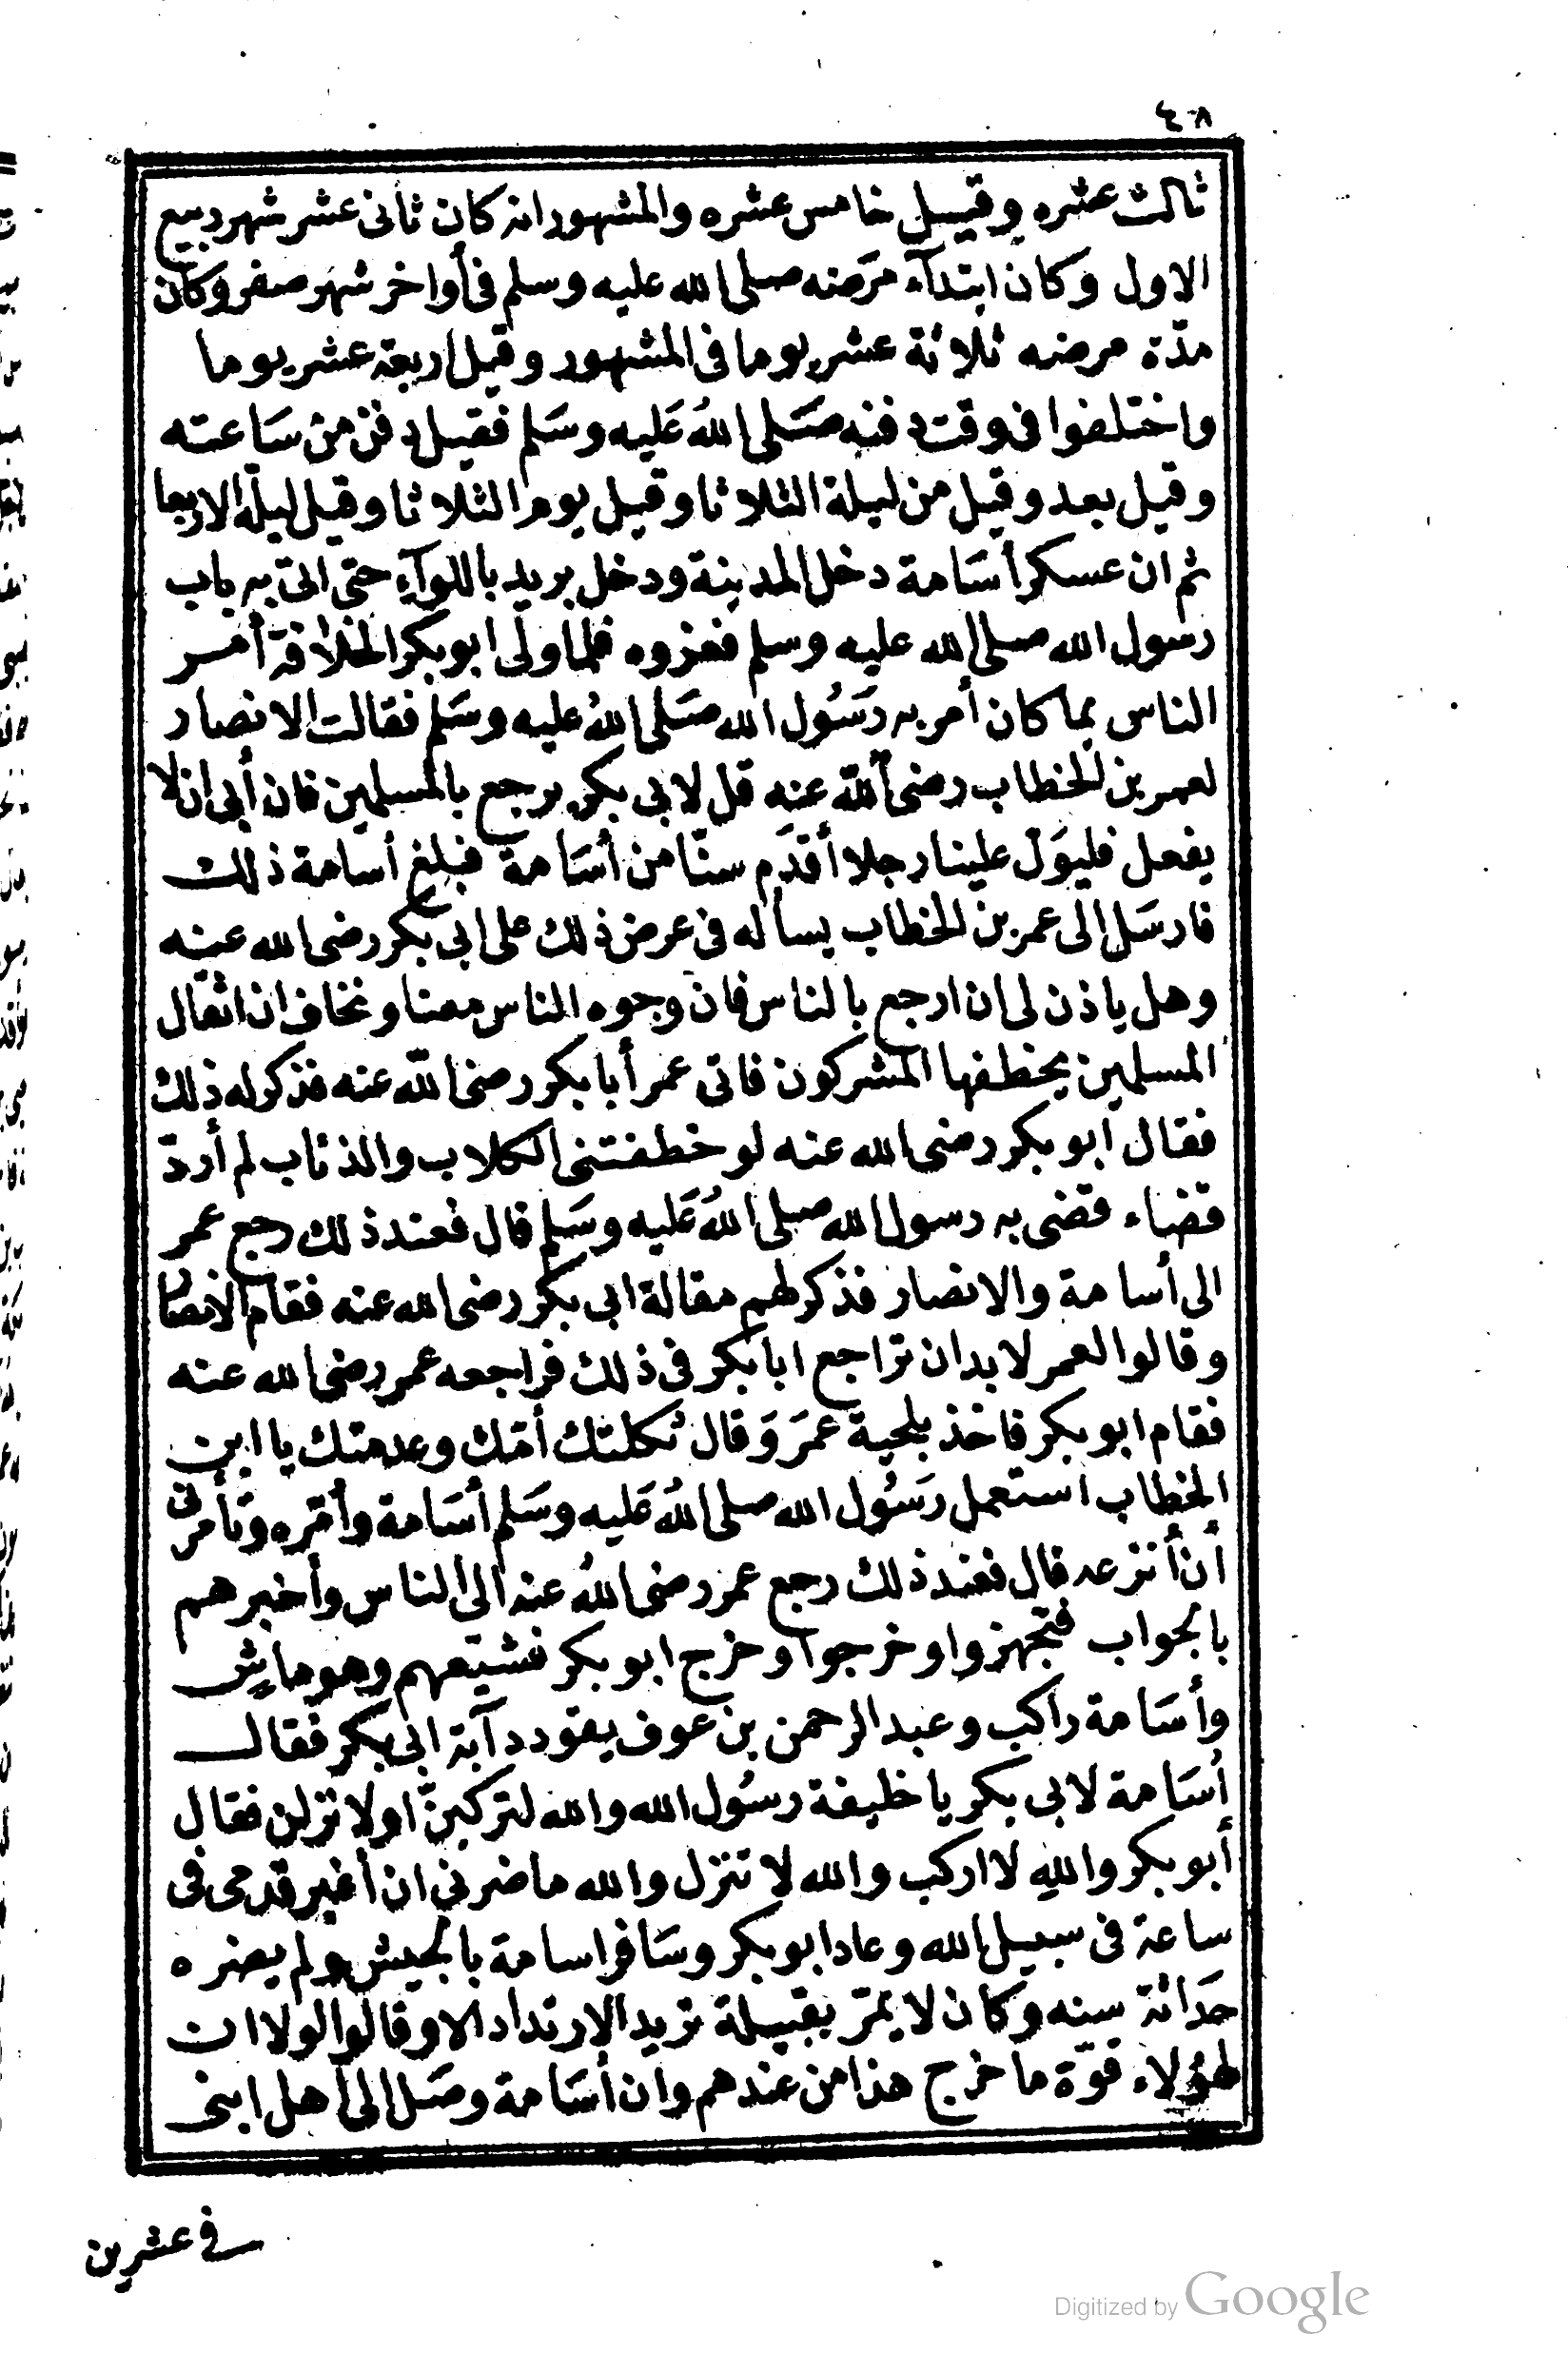 ٤٨
ثالث عشره وقيل خامس عشره والمشهور انه كان ثانى عشر شهر ربيع
الاول وكان ابتدآء مرَضه صلى الله عليه وسلم فى أواخر شهر صفر وكان
مدّة مرضه ثلاثة عشر يوما فى المشهور وقيل اربعة عشر يوما
واختلفوا فى وقت دفنه صَلى اللهُ عَليه وسَلم فقيل دفن من سَاعته
وقيل بعد وقيل من ليلة الثلاثا وقيل يوم الثلاثا وقيل ليلة الاربعا
ثم ان عسكر أسَامة دخل المدينة ودخل بريد باللوآء حتى اتى به باب
رسول الله صلى الله عليه وسلم فغزوه فلما ولى ابو بكر الخلافة أمر
الناس بما كان أمر به رَسُول الله صَلى اللهُ عليه وسَلم فقالت الانصار
لعمر بن الخطاب رضى الله عنه قل لابى بكر يرجع بالمسلمين فان أبى ان لا
يفعل فليوَل علينا رجلا أقدَم سنّا من أسَامة فبلغ أسامة ذلك
فارسَل الى عمر بن الخطاب يسأله فى عرض ذلك على ابى بكر رضى الله عنه
وهل ياذن لى ان ارجع بالناس فان وجوه الناس معنا ونخاف ان اثقال
المسلمين يخطفها المشركون فاتى عمر أبا بكر رضى الله عنه فذكر له ذلك
فقال ابو بكر رضى الله عنه لو خطفتنى الكلاب والذئاب لم أردّ
قضاء قضى به رسول الله صلى اللهُ عَليه وسَلم قال فعند ذلك رجع عمر
الى أسامة والانصار فذكر لهم مقالة ابى بكر رضى الله عنه فقام الانصار
وقالوا لعمر لا بد ان تراجع ابا بكر فى ذلك فراجعه عمر رضى الله عنه
فقام ابو بكر فاخذ بلحية عمَر وَقال ثكلتك أمّك وعدمتك يا ابن
الخطاب استعمل رَسُول الله صلى اللهُ عَليه وسَلم أسَامة وأمّره وتأمرنى
أن أنزعه قال فعند ذلك رجع عمر رضى اللهُ عنه الى الناس وأخبرهم
بالجواب فتجهزوا وخرجوا وخرج ابو بكر فشيّعهم وهو ماشٍ
وأسَامة راكب وعبد الرحمن بن عوف يقود دآبة ابى بكر فقال
أسَامة لابى بكر يا خليفة رسُول الله والله لتركبنّ او لانزلن فقال
أبو بكر واللهِ لا اركب والله لا تنزل والله ما ضرنى ان أغبر قدمى فى
ساعة فى سبيل الله وعاد ابو بكر وسَافر اسامة بالجيش ولم يضره
حَداثة سنه وكان لا يمرّ بقبيلة تريد الارتداد الا وقالوا لولا ان
لهؤلاء قوّة ما خرج هذا من عندهم وان أسَامة وصَل الى أهل ابنى
فى عشرين
Digitized by Google